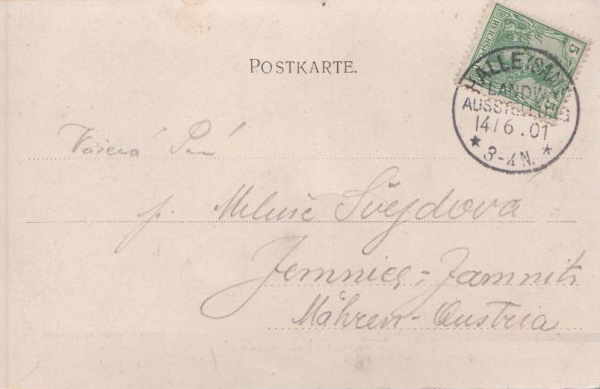 POSTKARTE.
5
HALLE (SAALE)
LANDW.
AUSSTELLUNG
14/6.01
* 3-4 N. *
Vážená Pní
p. Miluše Švejdova
Jemnice-Jamnitz
Mähren-Austria